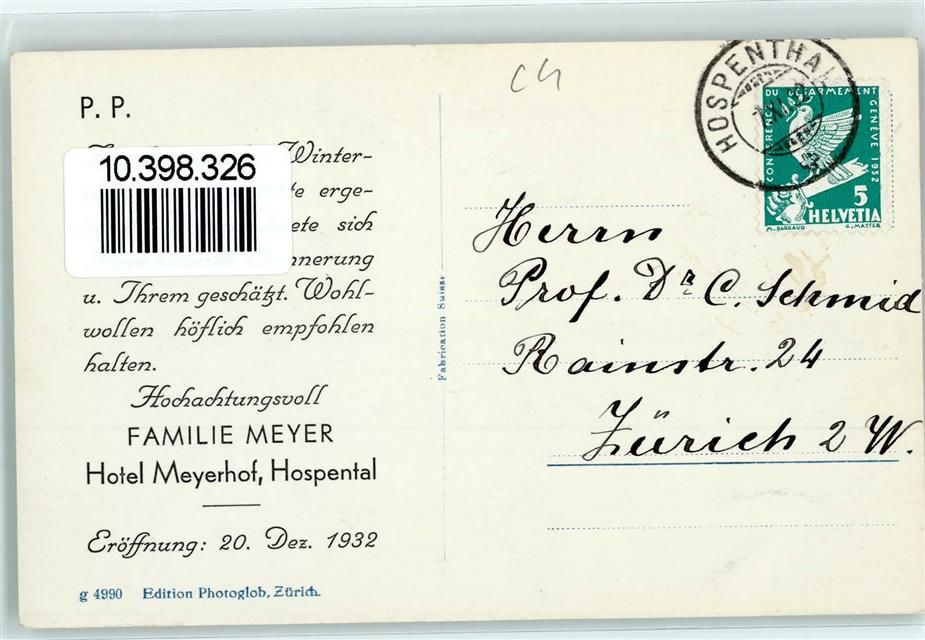 P. P.
Winter-
10.398.326
erge-
sich
u. Ihrem geschätzt. Wohl-
wollen höflich empfohlen
halten.
Hochachtungsvoll
FAMILIE MEYER
Hotel Meyerhof, Hospental
Eröffnung: 20. Dez. 1932
g 4990 Edition Photoglob, Zürich.
Fabrication Suisse
HOSPENTHAL
CONFERENCE DU DESARMEMENT GENÈVE 1932
5
HELVETIA
M. BARRAUD G. MATTER
Herrn
Prof. Dr C. Schmid
Rainstr. 24
Zürich 2 W.